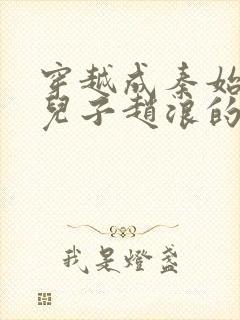 穿越成秦始
兒子趙浪的
我是燈盞